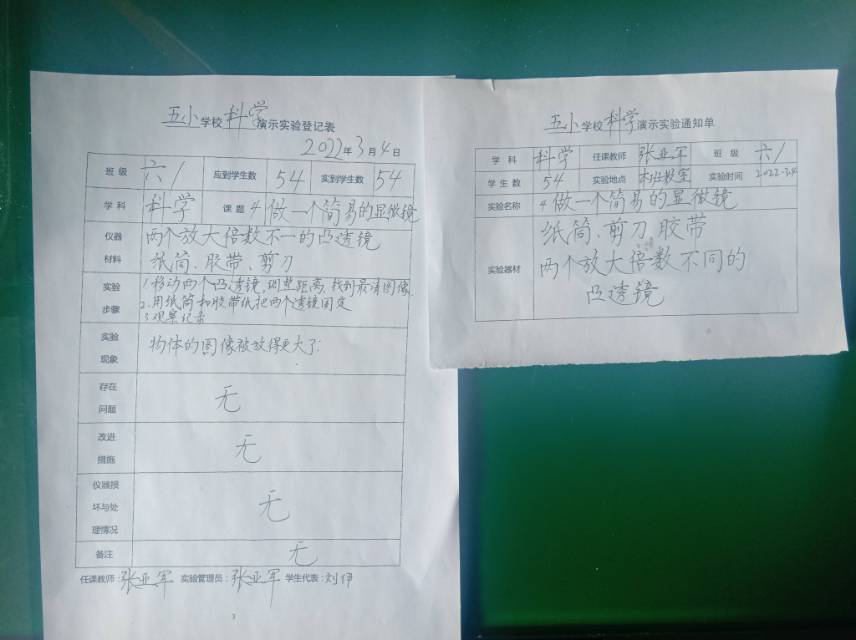 五小学校科学演示实验登记表
2022年3月4日
班级 六1 应到学生数 54 实到学生数 54
学科 科学 课题 4做一个简易的显微镜
仪器材料 两个放大倍数不一的凸透镜
纸筒、胶带、剪刀
实验步骤 1.移动两个凸透镜,调整距离,找到最清图像.
2.用纸筒和胶带纸把两个透镜固定
3.观察记录
实验现象 物体的图像被放得更大了.
存在问题 无
改进措施 无
仪器损坏与处理情况 无
备注 无
任课教师:张亚军 实验管理员:张亚军 学生代表:刘伊
五小学校科学演示实验通知单
学科 科学 任课教师 张亚军 班级 六1
学生数 54 实验地点 本班教室 实验时间 2022.3.4
实验名称 4做一个简易的显微镜
实验器材 纸筒、剪刀、胶带
两个放大倍数不同的
凸透镜